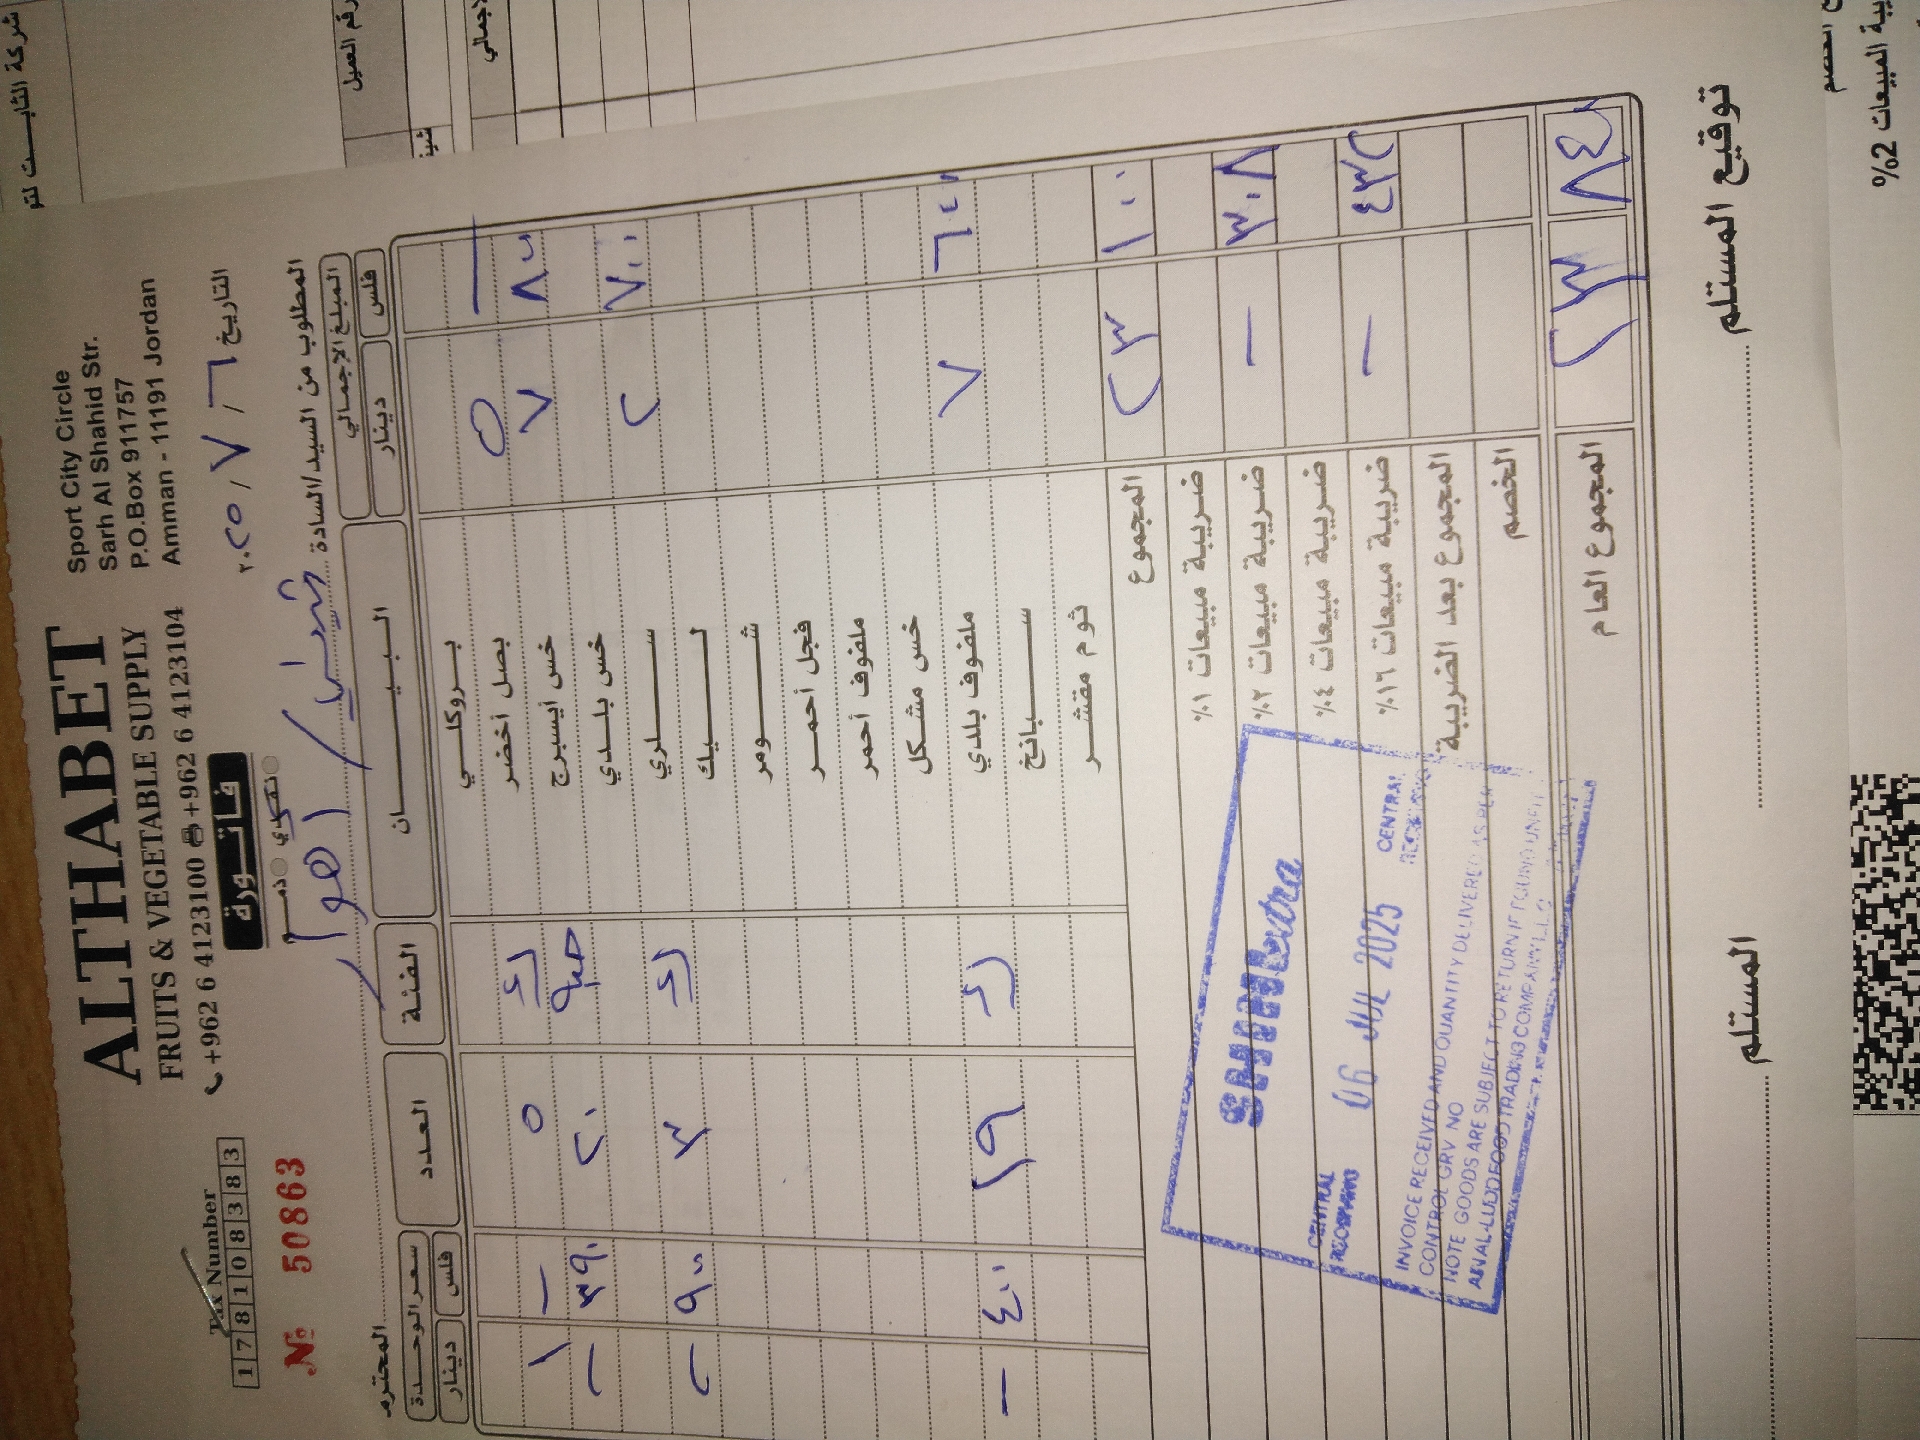 ALTHABET
FRUITS & VEGETABLE SUPPLY
+962 6 4123100 +962 6 4123104
Sport City Circle
Sarh Al Shahid Str.
P.O.Box 911757
Amman - 11191 Jordan
Tax Number
1 7 8 1 0 8 3 8 3
№ 50863
فاتورة
ذمم نقدي
التاريخ ٦ / ٧ / ٢٠٢٥
المطلوب من السيد/السادة
المحترم
المبلغ الاجمالي البيان الفئة العدد سعر الوحدة
فلس دينار فلس دينار
بروكلي
— ٥ بصل أخضر ٥ — ١
٨٠٠ ٧ خس أيسبرج ٢٠ ٣٩٠ —
خس بلدي
٧٠٠ ٢ سلري ٣ ٩٠٠ —
ليك
شومر
فجل أحمر
ملفوف أحمر
خس مشكل
٦٠٠ ٧ ملفوف بلدي ١٩ ٤٠٠ —
سبانخ
ثوم مقشر
١٠٠ ٢٣ المجموع
ضريبة مبيعات ١٪
٣٠٨ — ضريبة مبيعات ٢٪
ضريبة مبيعات ٤٪
٤٣٢ — ضريبة مبيعات ١٦٪
المجموع بعد الضريبة
الخصم
٨٤٠ ٢٣ المجموع العام
CENTRAL
RECEIVING
06 JUL 2025
CENTRAL
INVOICE RECEIVED AND QUANTITY DELIVERED AS PER
CONTROL GRV NO
NOTE GOODS ARE SUBJECT TO RETURN IF FOUND UNFIT
المستلم
توقيع المستلم
رقم العميل
ضريبة المبيعات 2%